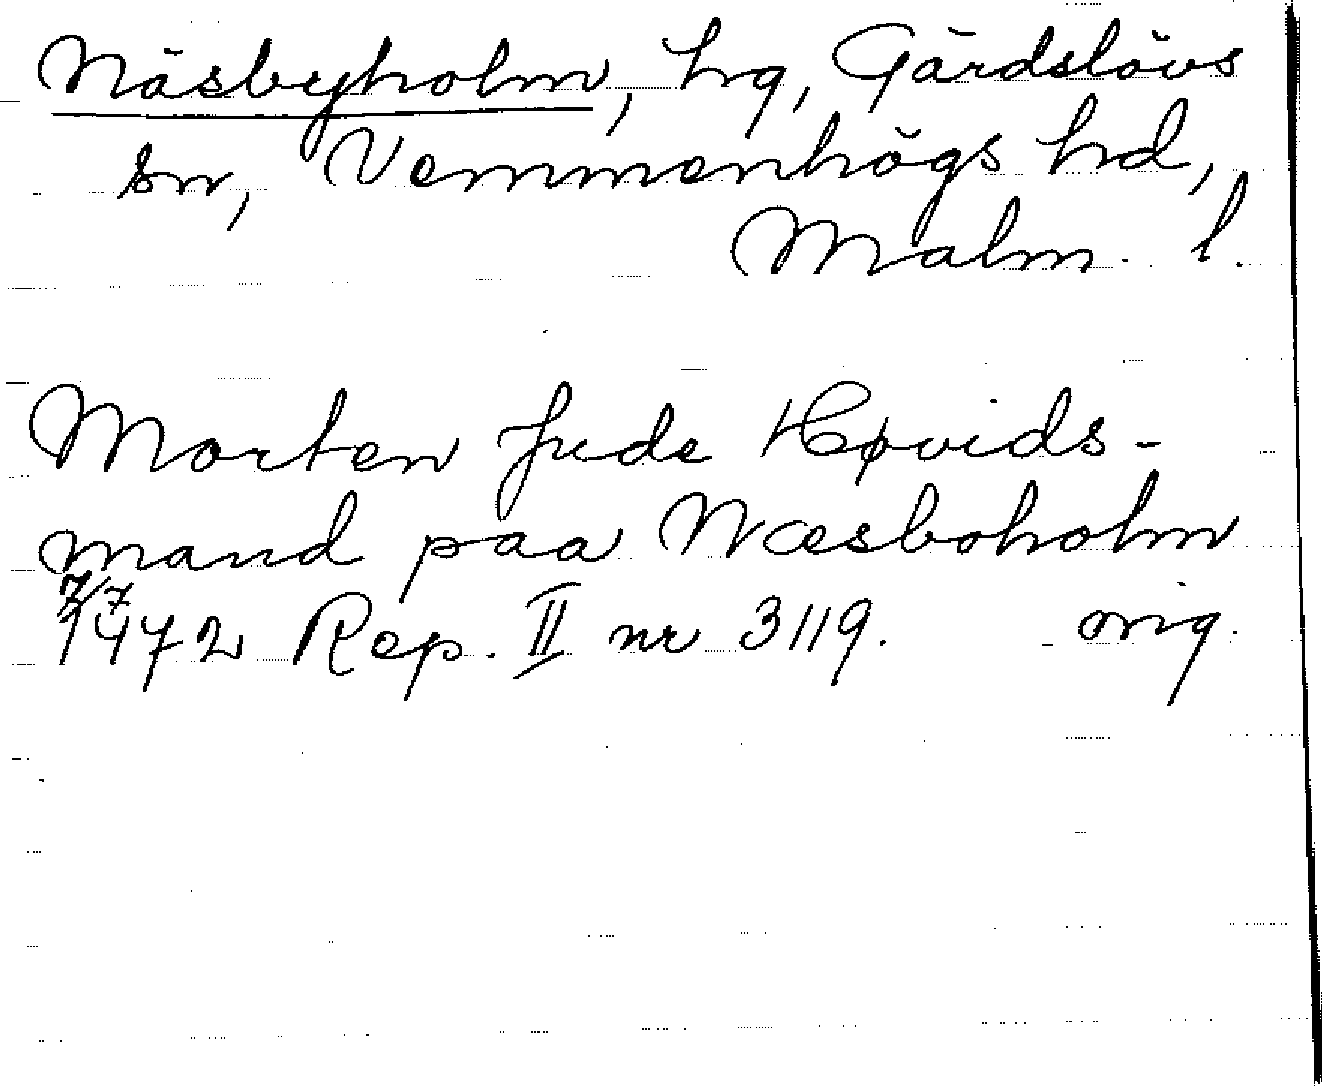 Näsbyholm, hg, Gärdslövs
sn, Vemmenhögs hd,
Malm. l.
Morten Jude Høvids-
mand paa Næsboholm
7/7
1472 Rep. II nr 3119. orig.